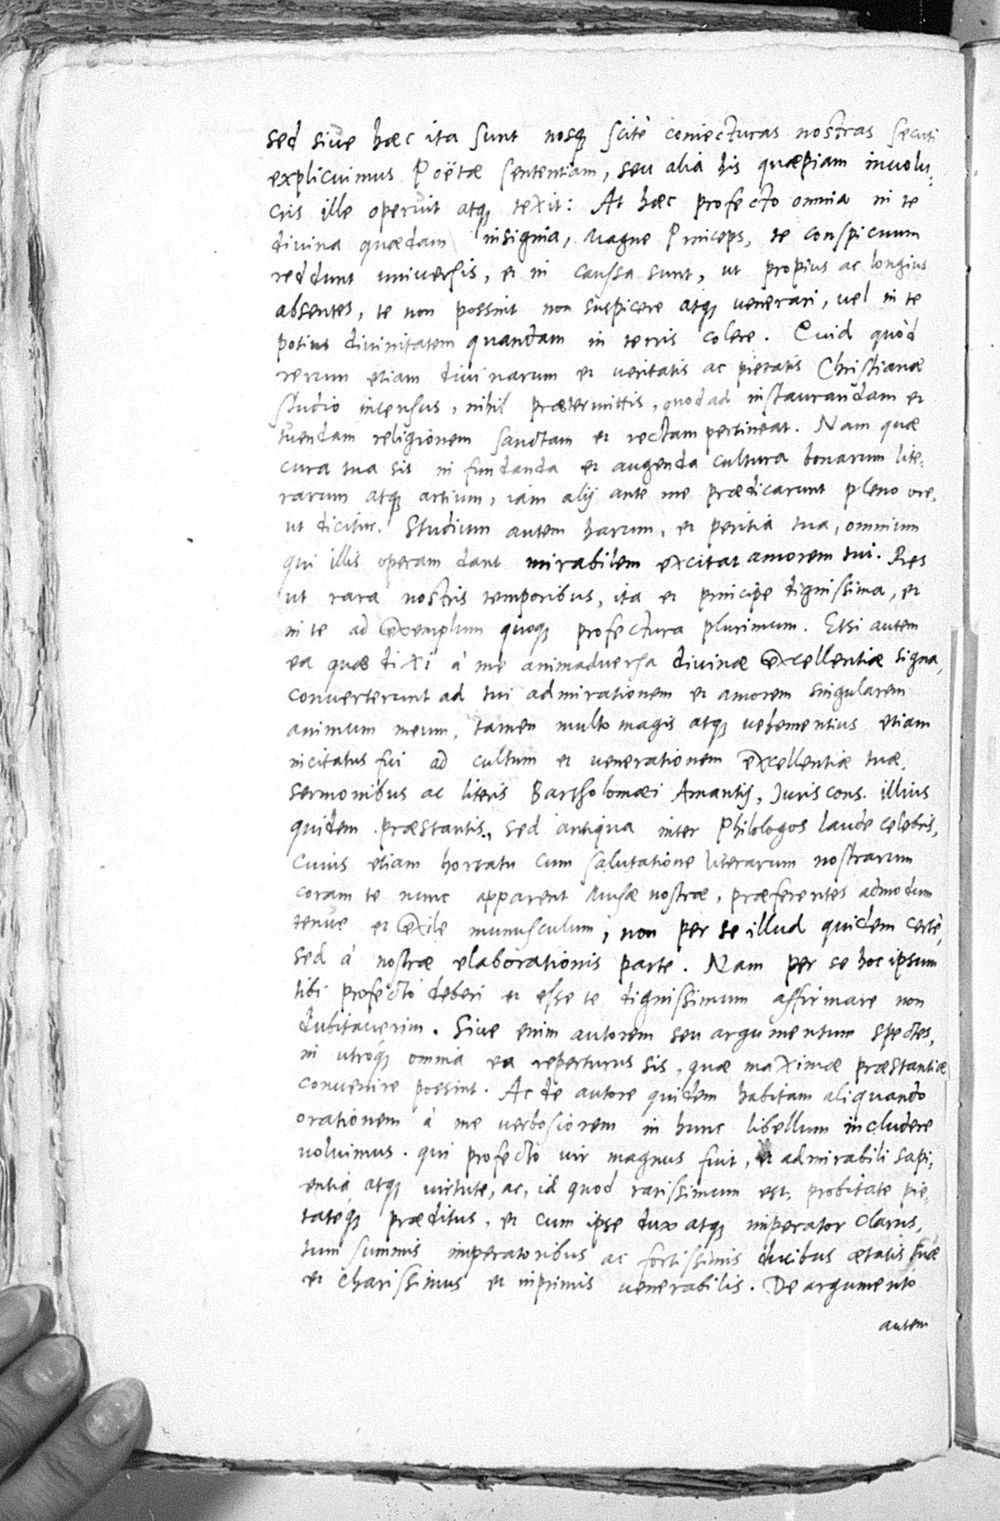 sed sive hæc ita sunt nosq; scitè coniecturas nostras secuti
explicuimus Poëtæ sententiam, seu alia his quæpiam involu,
cris ille operuit atq; texit: At hæc profecto omnia in te
divina quædam insignia, Magne Princeps, te conspicuum
reddunt universis, et in caussa sunt, ut propius ac longius
absentes, te non possint non suspicere atq; venerari, vel in te
potius divinitatem quandam in terris colere. Quid quòd
rerum etiam divinarum et veritatis ac pietatis Christianæ
studio intensus, nihil prætermittis, quod ad instaurandam et
tuendam religionem sanctam et rectam pertineat. Nam quæ
cura tua sit in fundanda et augenda cultura bonarum lite,
rarum atq; artium, iam alij ante me prædicarunt pleno ore,
ut dicitur. Studium autem harum, et peritia tua, omnium
qui illis operam dant mirabilem excitat amorem tui. Res
ut rara nostris temporibus, ita et principe dignissima, et
in te ad exemplum quoq; profectura plurimum. Etsi autem
ea quæ dixi à me animadversa divinæ excellentiæ signa,
converterunt ad tui admirationem et amorem singularem
animum meum, tamen multo magis atq; vehementius etiam
incitatus fui ad cultum et venerationem excellentiæ tuæ,
sermonibus ac literis Bartholomæi Amantij, Juriscons. illius
quidem præstantis, sed antiqua inter Philologos laude celebris,
cuius etiam hortatu cum salutatione literarum nostrarum
coram te nunc apparent Musæ nostræ, præferentes admodum
tenue et exile munusculum, non per se illud quidem certè,
sed à nostræ elaborationis parte. Nam per se hoc ipsum
tibi profectò deberi et esse te dignissimum affirmare non
dubitaverim. Sive enim autorem seu argumentum spectes,
in utroq; omnia ea reperturus sis, quæ maximæ præstantiæ
convenire possint. Ac de autore quidem habitam aliquando
orationem à me verbosiorem in hunc libellum includere
voluimus. qui profecto vir magnus fuit, et admirabili sapi,
entia atq; virtute, ac, id quod rarissimum est, probitate pie,
tateq; præditus, et cum ipse dux atq; imperator clarus,
tum summis imperatoribus ac fortissimis ducibus ætatis suæ
et charissimus et inprimis venerabilis. De argumento
autem